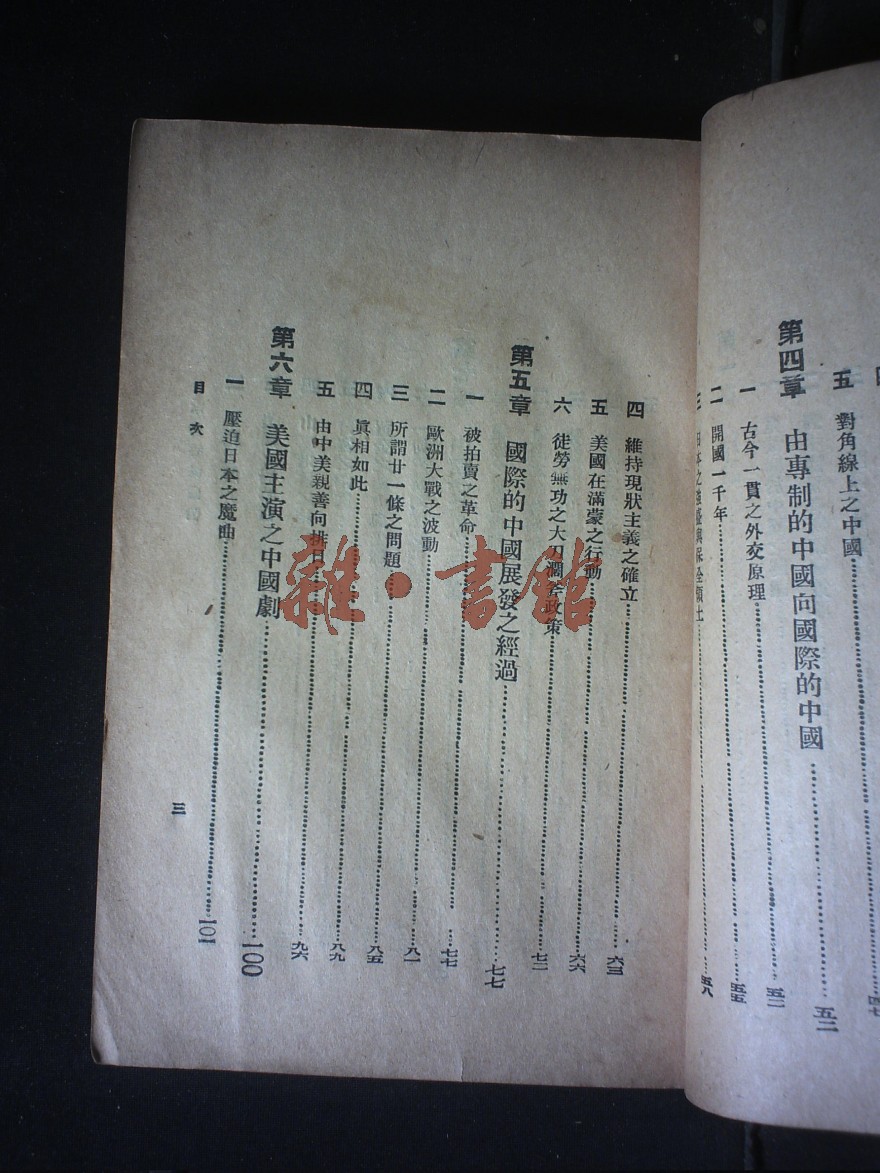 四七
五 對角線上之中國
第四章 由專制的中國向國際的中國 五二
一 古今一貫之外交原理 五二
二 開國一千年 五五
三 日本之強盛與保全領土 五八
四 維持現狀主義之確立 六三
五 美國在滿蒙之行動 六六
六 徒勞無功之大刀濶斧政策 七二
第五章 國際的中國展發之經過 七七
一 被拍賣之革命 七七
二 歐洲大戰之波動 八一
三 所謂廿一條之問題 八五
四 眞相如此 八九
五 由中美親善向排日 九六
第六章 美國主演之中國劇 一〇〇
一 壓迫日本之魔曲 一〇一
目次
三
雜·書館